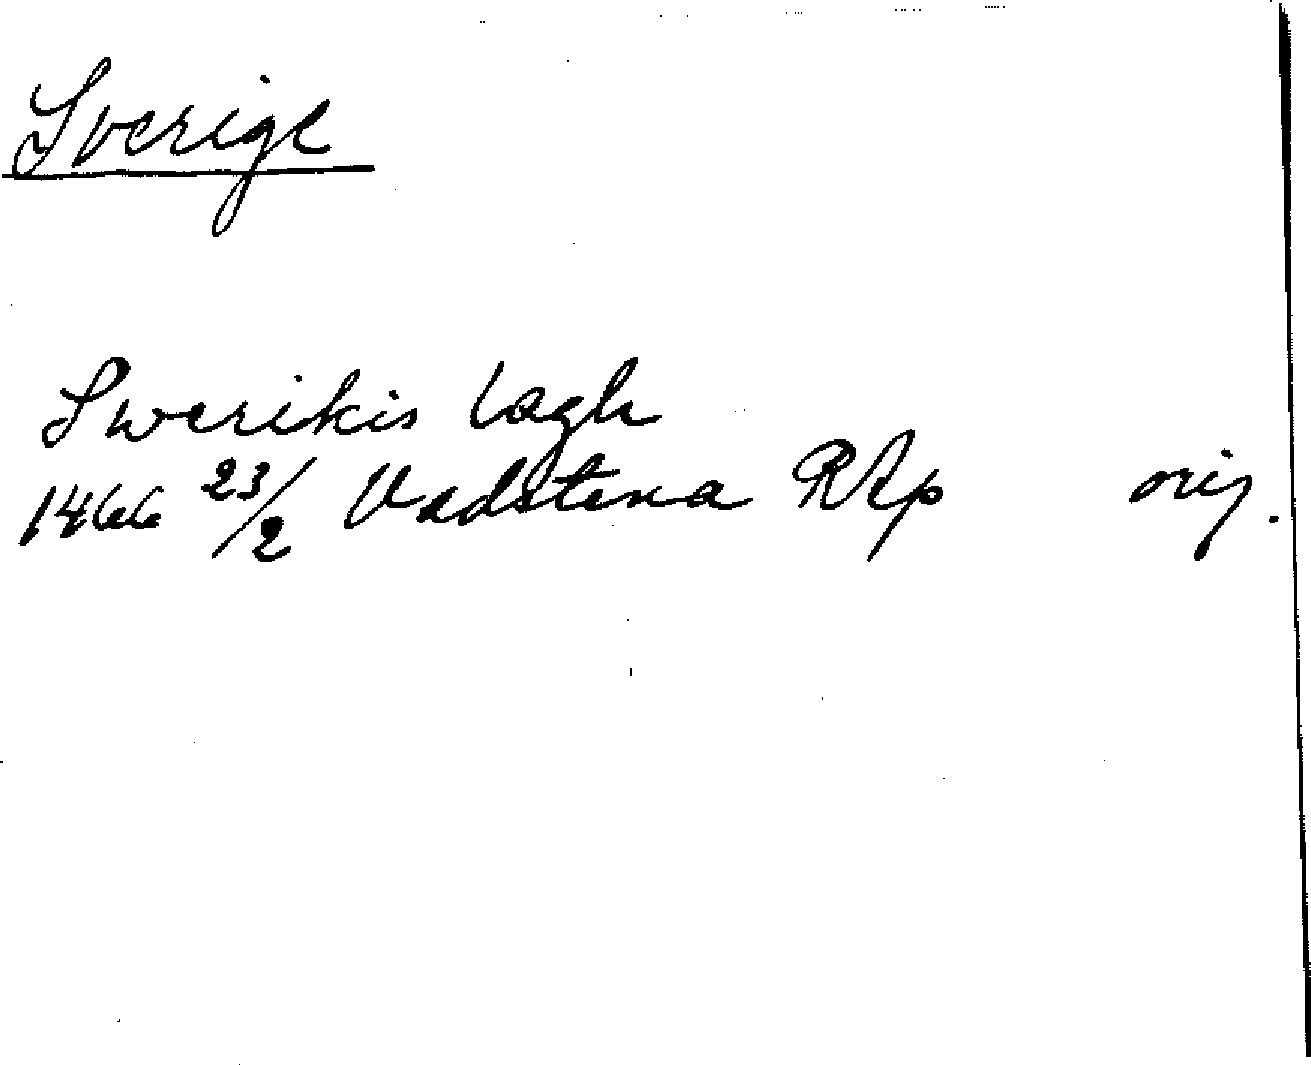 Sverige
Swerikis lagh
1466 23/2 Vadstena RAp orig.